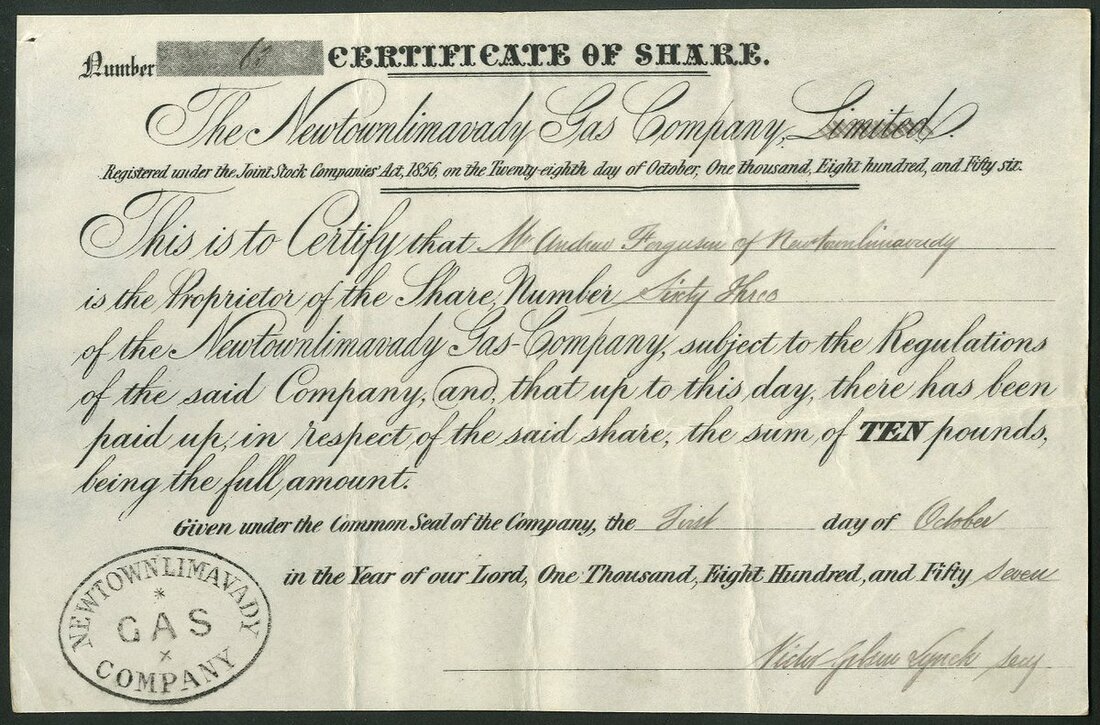 Number 63 CERTIFICATE OF SHARE.
The Newtownlimavady Gas Company, Limited.
Registered under the Joint Stock Companies Act, 1856, on the Twenty-eighth day of October, One thousand, Eight hundred, and Fifty six.
This is to Certify that Mr Andrew Ferguson of Newtownlimavady
is the Proprietor of the Share, Number Sixty Three
of the Newtownlimavady Gas-Company, subject to the Regulations
of the said Company, and, that up to this day, there has been
paid up, in respect of the said share, the sum of TEN pounds,
being the full amount.
Given under the Common Seal of the Company, the First day of October
in the Year of our Lord, One Thousand, Eight Hundred, and Fifty Seven
NEWTOWNLIMAVADY
GAS
COMPANY
Victor Lynch secy